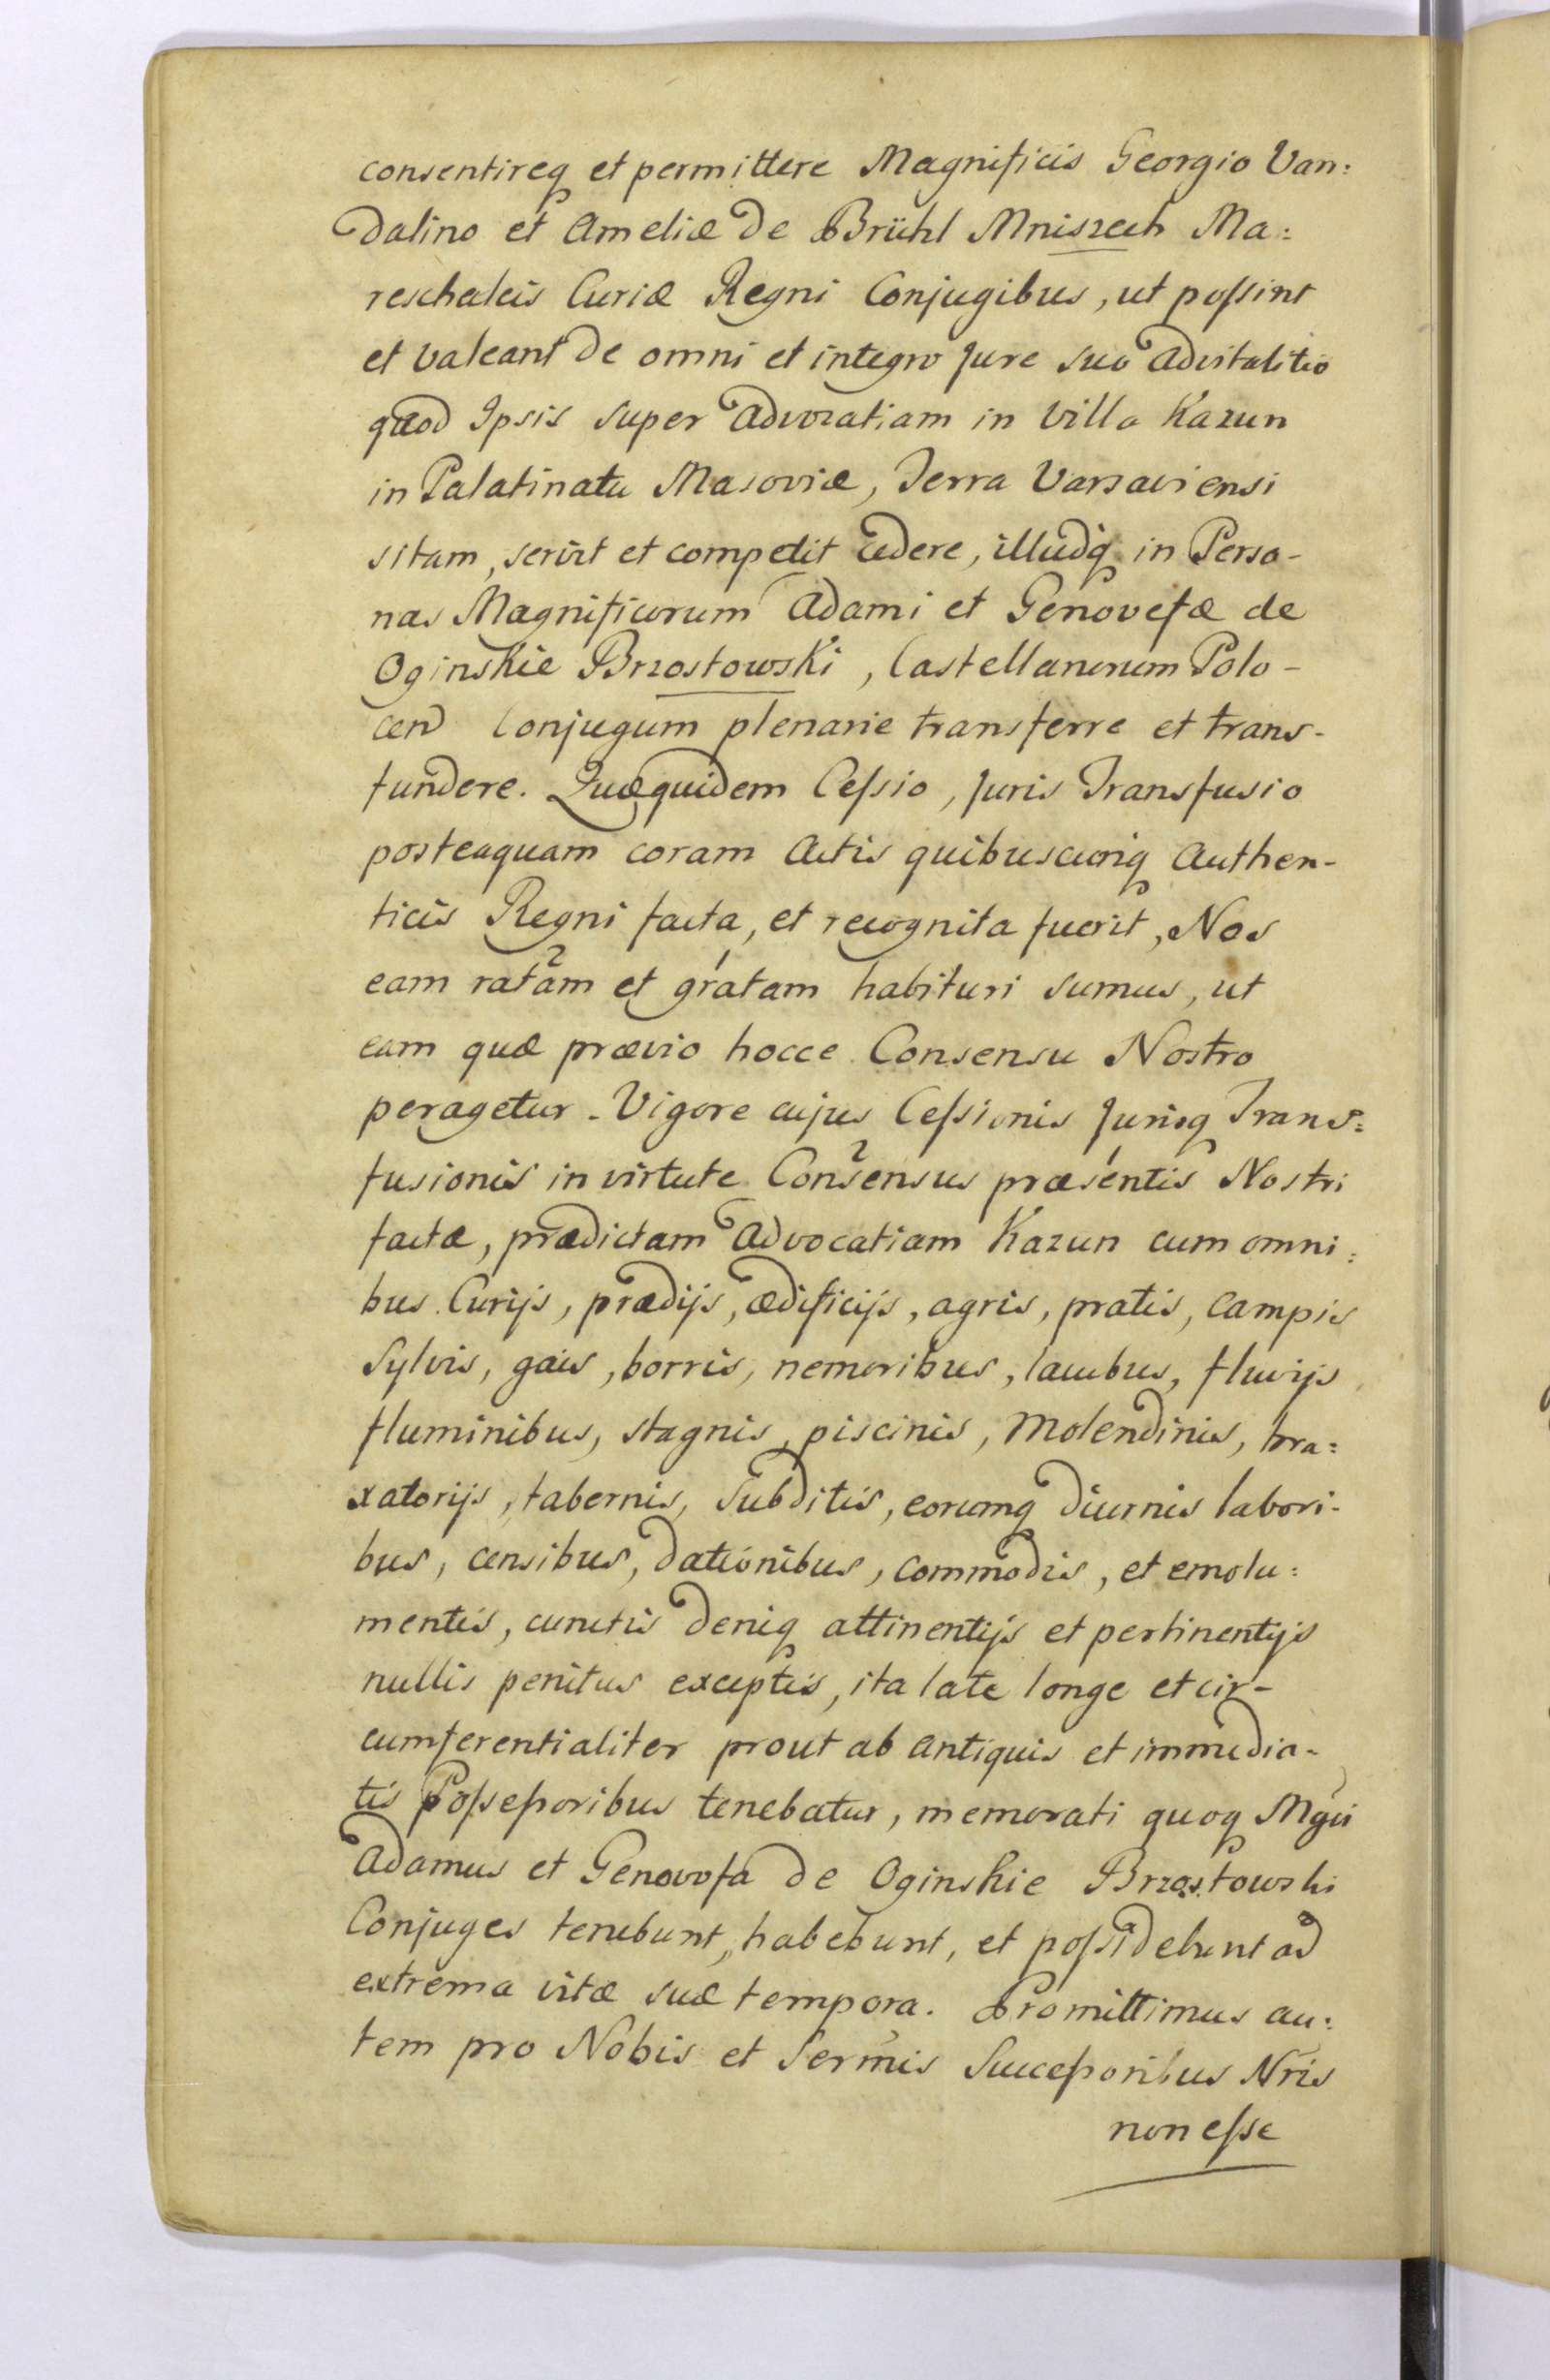 consentireq et permittere Magnificis Georgio Van:
dalino et Ameliæ de Brühl Mniszech Ma:
reschalcis Curiæ Regni Conjugibus, ut poſsint
et valeant de omni et integro Jure suo advitalitio
quod Ipsis super advocatiam in Villa Kazun
in Palatinatu Masoviæ, Terra Varsaviensi
sitam, servit et competit cedere, illudq in Perso-
nas Magnificorum Adami et Genovefæ de
Oginskie Brzostowski, Castellanorum Polo-
cen Conjugum plenarie transferre et trans-
fundere. Quæquidem Ceſsio, Juris Transfusio
posteaquam coram Actis quibuscunq authen-
ticis Regni facta, et recognita fuerit, Nos
eam ratam et gratam habituri sumus, ut
eam quæ prævio hocce Consensu Nostro
peragetur. Vigore cujus Ceſsionis Jurisq Trans:
fusionis in virtute Consensus præsentis Nostri
factæ, prædictam advocatiam Kazun cum omni:
bus Curijs, prædijs, ædificijs, agris, pratis, campis
Sylvis, gais, borris, nemoribus, lacubus, fluvijs
fluminibus, stagnis, piscinis, Molendinis, bra:
xatorijs, tabernis, Subditis, eorumq diurnis labori-
bus, censibus, dationibus, commodis, et emolu:
mentis, cunctis deniq attinentijs et pertinentijs
nullis penitus exceptis, ita late longe et cir-
cumferentialiter prout ab antiquis et immedia-
tis Poſseſsoribus tenebatur, memorati quoq Mgci
Adamus et Genovefa de Oginskie Brzostowski
Conjuges tenebunt, habebunt, et poſsidebunt ad
extrema vitæ suæ tempora. Promittimus au:
tem pro Nobis et Sermis Succeſsoribus Nris
non eſse